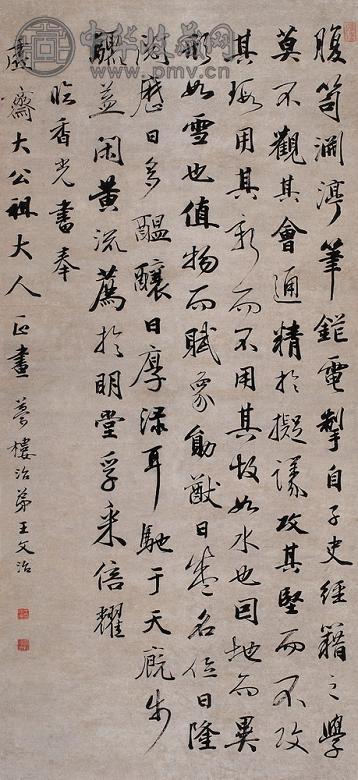 中华收藏网
www.pmv.cn
腹笥渊渟笔铓電掣自子史經籍之學
莫不觀其會通精於擬議攻其堅而不攻
其瑕用其新而不用其故如水也因地而異
形如雪也值物而賦象勋猷日盛名位日隆
阅歷日多醞釀日厚渌耳馳于天厩步
驟益閑黄流薦於明堂孚采倍耀
临香光書奉
齋大公祖大人正畫
夢樓治弟王文治